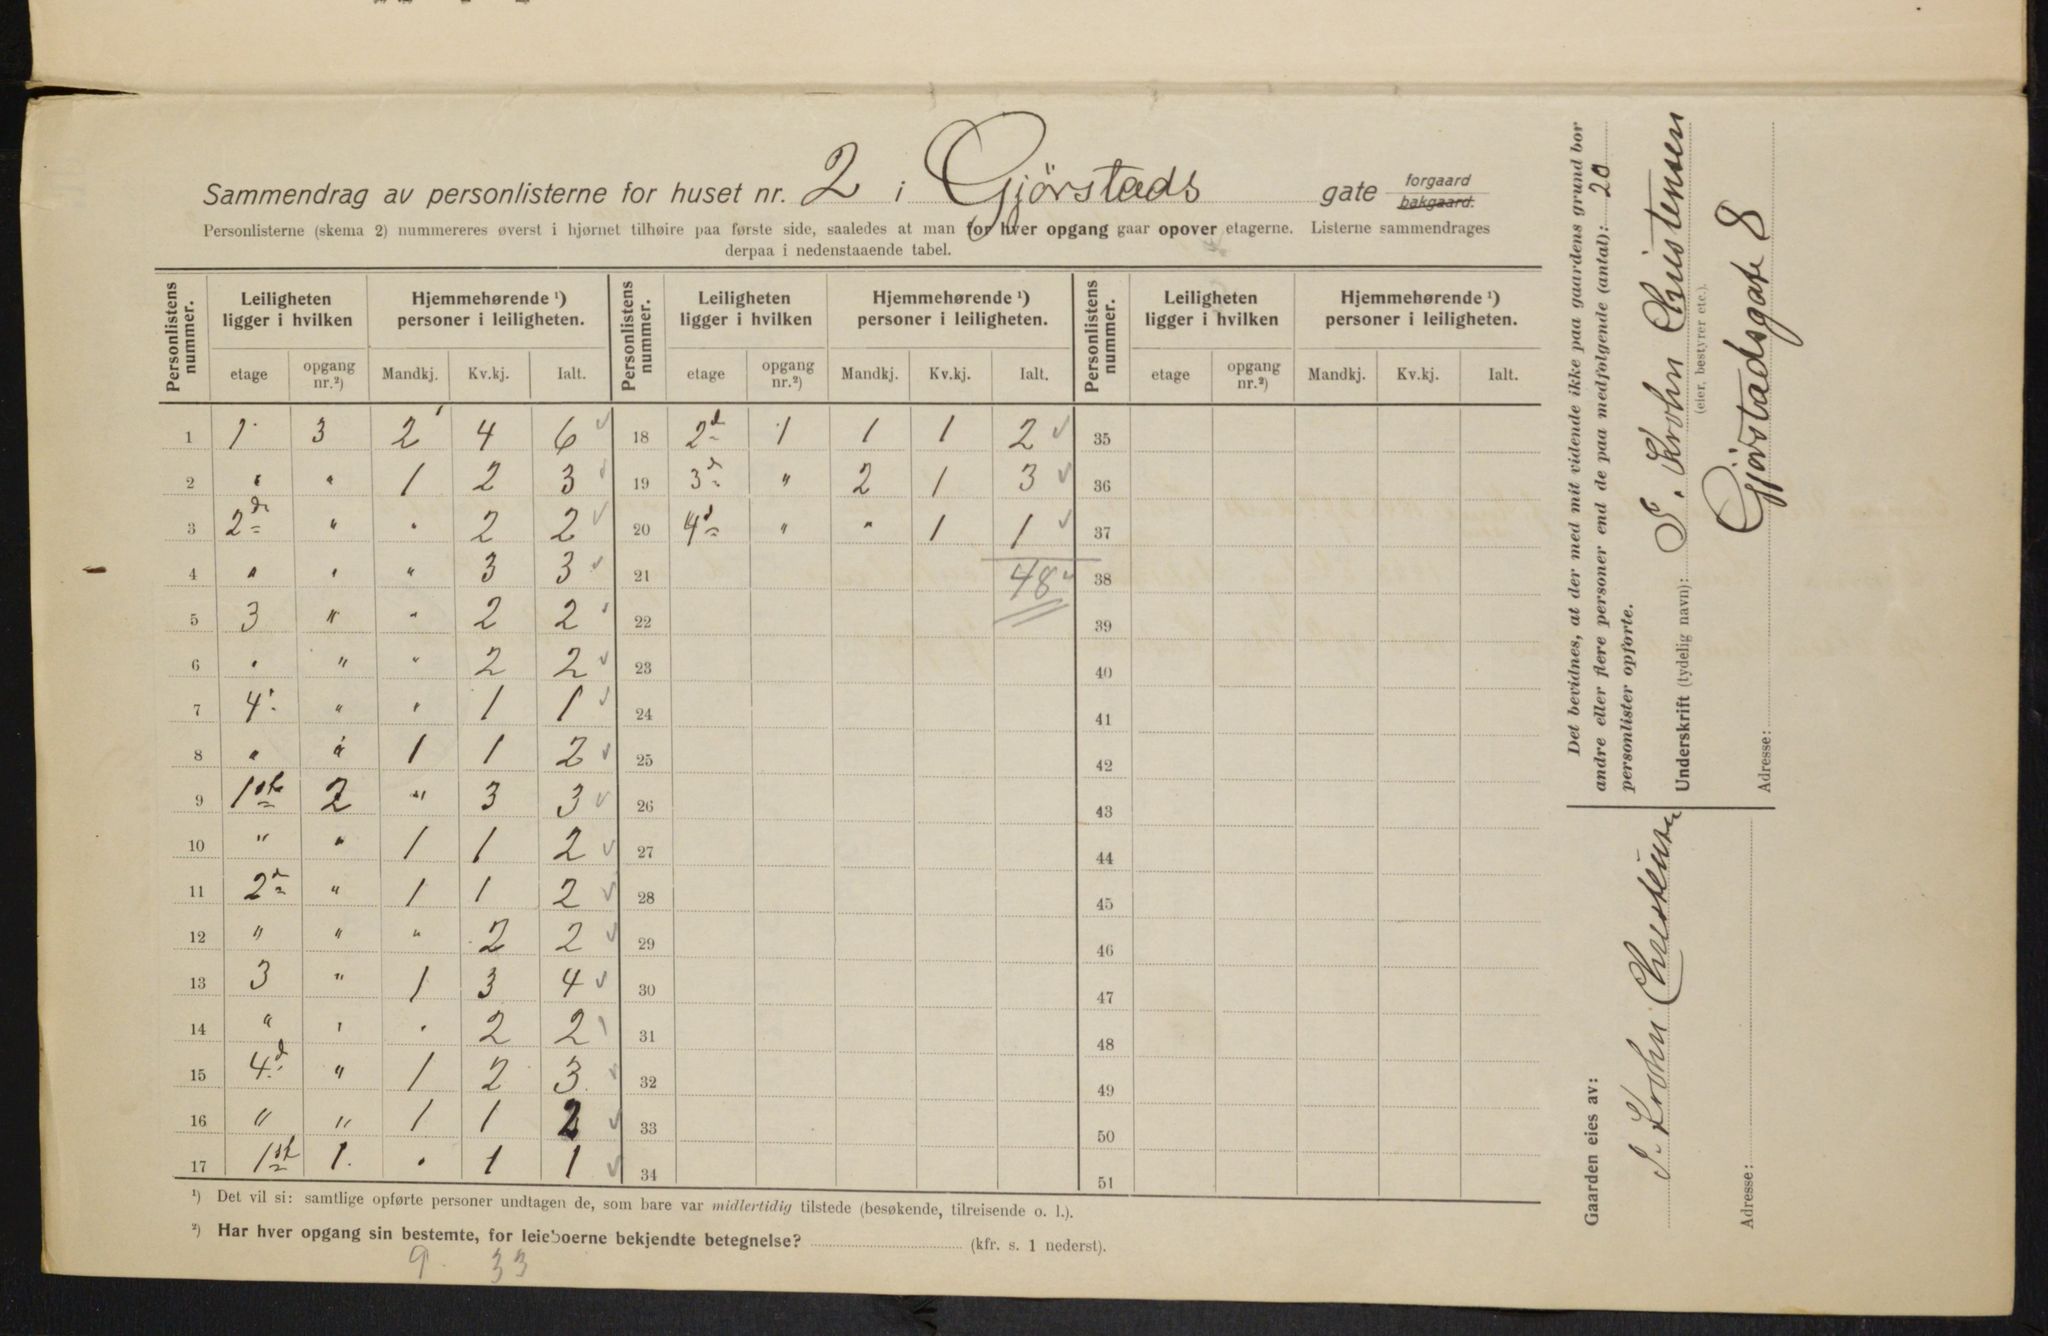 Sammendrag av personlisterne for huset nr. 2 i Gjörstads gate forgaard bakgaard.
Personlisterne (skema 2) nummereres øverst i hjørnet tilhøire paa første side, saaledes at man for hver opgang gaar opover etagerne. Listerne sammendrages
derpaa i nedenstaaende tabel.
Personlistens nummer. Leiligheten ligger i hvilken Hjemmehørende ¹) personer i leiligheten. Personlistens nummer. Leiligheten ligger i hvilken Hjemmehørende ¹) personer i leiligheten. Personlistens nummer. Leiligheten ligger i hvilken Hjemmehørende ¹) personer i leiligheten.
etage opgang nr.²) Mandkj. Kv.kj. Ialt. etage opgang nr.²) Mandkj. Kv.kj. Ialt. etage opgang nr.²) Mandkj. Kv.kj. Ialt.
1 1 3 2 4 6 ✓ 18 2d 1 1 1 2 ✓ 35
2 " " 1 2 3 ✓ 19 3d " 2 1 3 ✓ 36
3 2d " " 2 2 ✓ 20 4d " " 1 1 ✓ 37
4 " " " 3 3 ✓ 21 48 38
5 3 " " 2 2 ✓ 22 39
6 " " " 2 2 ✓ 23 40
7 4 " " 1 1 ✓ 24 41
8 " " 1 1 2 ✓ 25 42
9 1ste 2 " 3 3 ✓ 26 43
10 " " 1 1 2 ✓ 27 44
11 2d " 1 1 2 ✓ 28 45
12 " " " 2 2 ✓ 29 46
13 3 " 1 3 4 ✓ 30 47
14 " " " 2 2 ✓ 31 48
15 4d " 1 2 3 ✓ 32 49
16 " " 1 1 2 ✓ 33 50
17 1st 1 " 1 1 ✓ 34 51
¹) Det vil si: samtlige opførte personer undtagen de, som bare var midlertidig tilstede (besøkende, tilreisende o. l.).
²) Har hver opgang sin bestemte, for leieboerne bekjendte betegnelse? (kfr. s. 1 nederst).
9 33
Det bevidnes, at der med mit vidende ikke paa gaardens grund bor
andre eller flere personer end de paa medfølgende (antal): 20
personlister opførte.
Underskrift (tydelig navn): S. Krohn Christensen
(eier, bestyrer etc.).
Adresse: Gjörstadsgate 8
Gaarden eies av:
S. Krohn Christensen
Adresse: